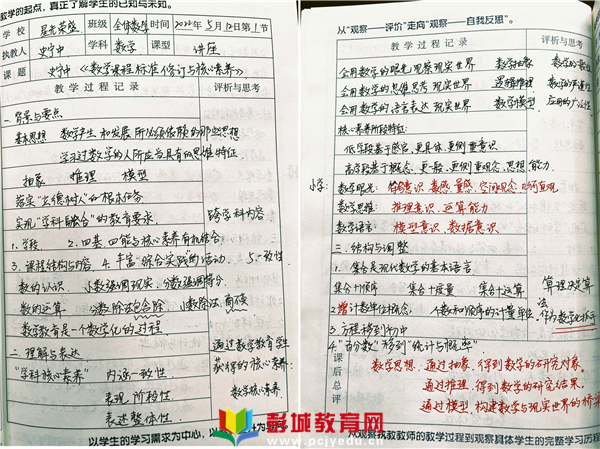 教学的起点，真正了解学生的已知与未知。
学校 星光荣盛 班级 全体数学 时间 2022年5月12日第1节
执教人 史宁中 学科 数学 课型 讲座
课题 史宁中《数学课程标准修订与核心素养》
教学过程记录 评析与思考
一.背景与要点
基本思想 数学产生和发展所必须依赖的那些思想
学习过数学的人所应当具有的思维特征.
抽象 推理 模型
落实"立德树人"的根本任务
实现"学科融合"的教育要求. 跨学科内容
1.学段 2.四基四能与核心素养有机结合
3.课程结构与内容 4.丰富"综合实践"的活动 5.一致性
数的认识 小数强调现实,分数强调等分.
数的运算 分数除法包含除 小数除法:商
数学教育是一个数学化的过程
二.理解与表达 通过数学教育学生
"学科核心素养" 内涵一致性 获得的核心素养:
表现阶段性 数学核心素养
表述整体性
以学生的学习需求为中心,以
从"观察——评价"走向"观察——自我反思"。
教学过程记录 评析与思考
会用数学的眼光观察现实世界 数学抽象 数学的一般性
会用数学的思维思考现实世界 逻辑推理 数学的严谨性
会用数学的语言表达现实世界 数学模型 应用的广泛性
核心素养阶段特征:
低学段基于感官,更具体,更侧重意识
高学段基于概念,更一般,更侧重观念、思想、能力.
小学: 数学眼光: 符号意识、数感、量感、空间观念、几何直观
数学思维: 推理意识、运算能力
数学语言: 模型意识、数据意识
三.结构与调整
1.集合是现代数学的基本语言
集合十顺序 集合十度量 集合十运算 算理决定算法
2.增计数单位概念, 个数和顺序的计量单位
3.方程移到初中
4."百分数"移到"统计与概率"
课后总评
数学思想.通过抽象,得到数学的研究对象.
通过推理,得到数学的研究结果.
通过模型,构建数学与现实世界的桥梁
从观察执教教师的教学过程到观察具体学生的完整学习历程
彭城教育网
www.pcjyedu.cn